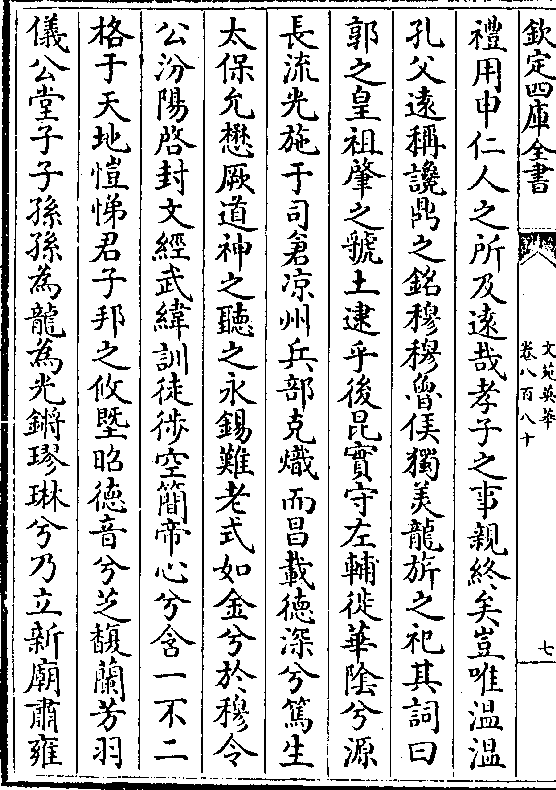 欽定四庫全書
文苑英華
卷八百八十
七
禮用申仁人之所及遠哉孝子之事親終矣豈唯温温
孔父遠稱讒鼎之銘穆穆魯侯獨美龍旂之祀其詞曰
郭之皇祖肇之虢土逮乎後昆實守左輔徙華陰兮源
長流光施于司倉涼州兵部克熾而昌載德深兮篤生
太保允懋厥道神之聽之永錫難老式如金兮於穆令
公汾陽啓封文經武緯訓徒陟空簡帝心兮含一不二
格于天地愷悌君子邦之攸塈昭德音兮芝馥蘭芳羽
儀公堂子子孫孫為龍為光鏘璆琳兮乃立新廟肅雍